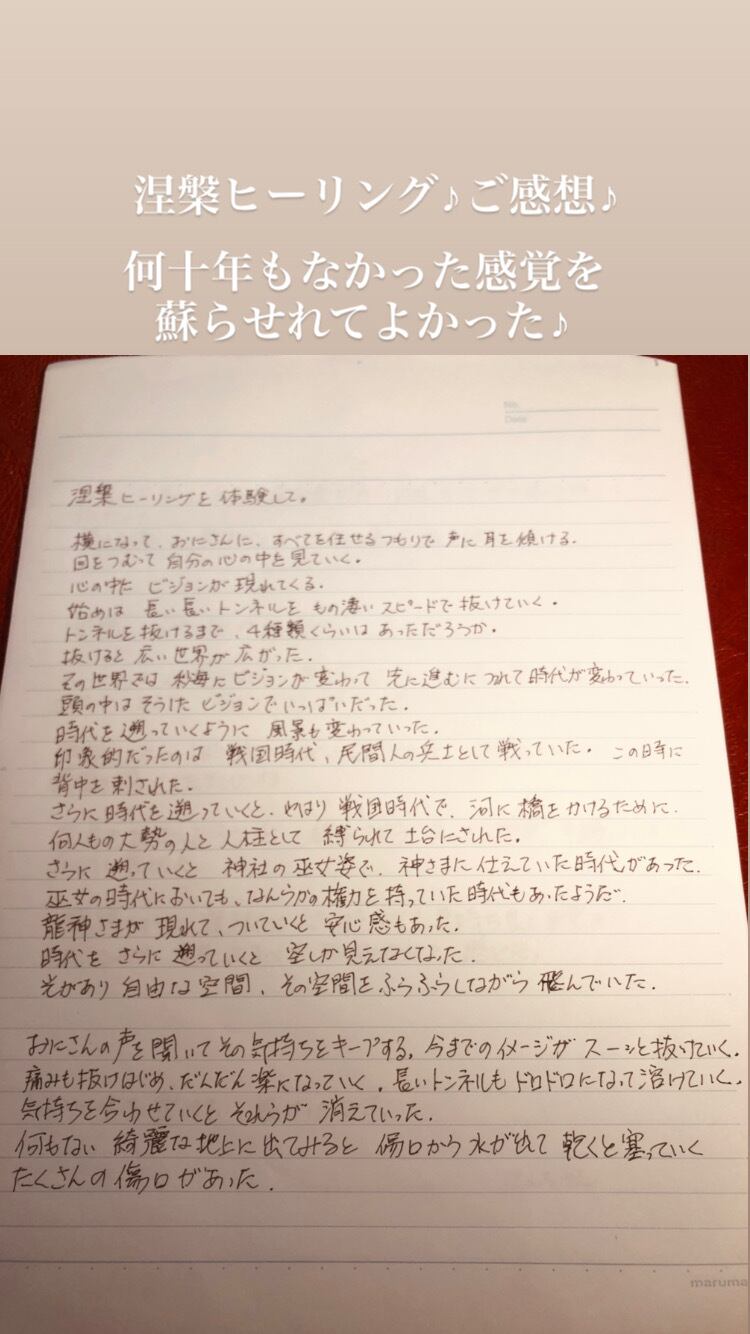 涅槃ヒーリング♪ご感想♪
何十年もなかった感覚を
蘇らせれてよかった♪
No.
Date
涅槃ヒーリングを体験して。
横になって、おにさんに、すべてを任せるつもりで声に耳を傾ける.
目をつむって自分の心の中を見ていく.
心の中に ビジョンが現れてくる.
始めは 長い長いトンネルを もの凄いスピードで抜けていく.
トンネルを抜けるまで、4種類くらいはあっただろうか.
抜けると広い世界が広がった.
その世界では秒毎にビジョンが変わって 先に進むにつれて時代が変わっていった.
頭の中はそうした ビジョンでいっぱいだった.
時代を遡っていくように 風景も変わっていった.
印象的だったのは 戦国時代、民間人の兵士として戦っていた. この時に
背中を刺された.
さらに時代を遡っていくと、やはり戦国時代で、河に橋をかけるために.
何人もの大勢の人と人柱として 縛られて土台にされた.
さらに 遡っていくと 神社の巫女姿で、神さまに仕えていた時代があった.
巫女の時代においても、なんらかの権力を持っていた時代もあったようだ.
龍神さまが 現れて、ついていくと 安心感もあった.
時代を さらに 遡っていくと 空しか見えなくなった.
光があり 自由な空間、その空間をふらふらしながら 飛んでいた.
おにさんの声を聞いてその気持ちをキープする、今までのイメージが スーッと抜けていく.
痛みも抜けはじめ、だんだん楽になっていく. 長いトンネルもドロドロになって溶けていく.
気持ちを合わせていくと それらが 消えていった.
何もない 綺麗な地上に出てみると 傷口から水が出て 乾くと塞っていく
たくさんの傷口があった.
maruma